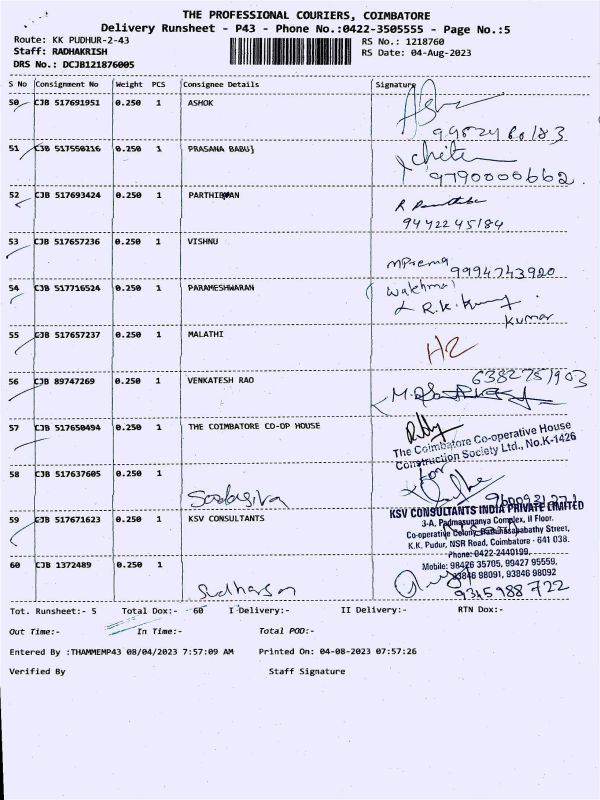 THE PROFESSIONAL COURIERS, COIMBATORE
Delivery Runsheet - P43 - Phone No.:0422-3505555 - Page No.:5
Route: KK PUDHUR-2-43 RS No.: 1218760
Staff: RADHAKRISH RS Date: 04-Aug-2023
DRS No.: DCJB121876005
S No Consignment No Weight PCS Consignee Details Signature
50 CJB 517691951 0.250 1 ASHOK
51 CJB 517550216 0.250 1 PRASANA BABU}
9790000662
52 CJB 517693424 0.250 1 PARTHIBAN
9442245184
53 CJB 517657236 0.250 1 VISHNU
9994743920
54 CJB 517716524 0.250 1 PARAMESHWARAN
Kumar
55 CJB 517657237 0.250 1 MALATHI
56 CJB 89747269 0.250 1 VENKATESH RAO
6382751903
57 CJB 517650494 0.250 1 THE COIMBATORE CO-OP HOUSE
The Coimbatore Co-operative House
Construction Society Ltd., No.K-1426
58 CJB 517637605 0.250 1
Sadasiva
59 CJB 517671623 0.250 1 KSV CONSULTANTS
KSV CONSULTANTS INDIA PRIVATE LIMITED
3-A, Padmasuganya Complex, II Floor.
Co-operative Colony, Street,
K.K. Pudur, NSR Road, Coimbatore - 641 038.
Phone: 0422-2440199,
Mobile: 98426 35705, 99427 95559,
93846 98091, 93846 98092
60 CJB 1372489 0.250 1
Sudharson 9345988722
Tot. Runsheet:- 5 Total Dox:- 60 I Delivery:- II Delivery:- RTN Dox:-
Out Time:- In Time:- Total POD:-
Entered By :THAMMEMP43 08/04/2023 7:57:09 AM Printed On: 04-08-2023 07:57:26
Verified By Staff Signature